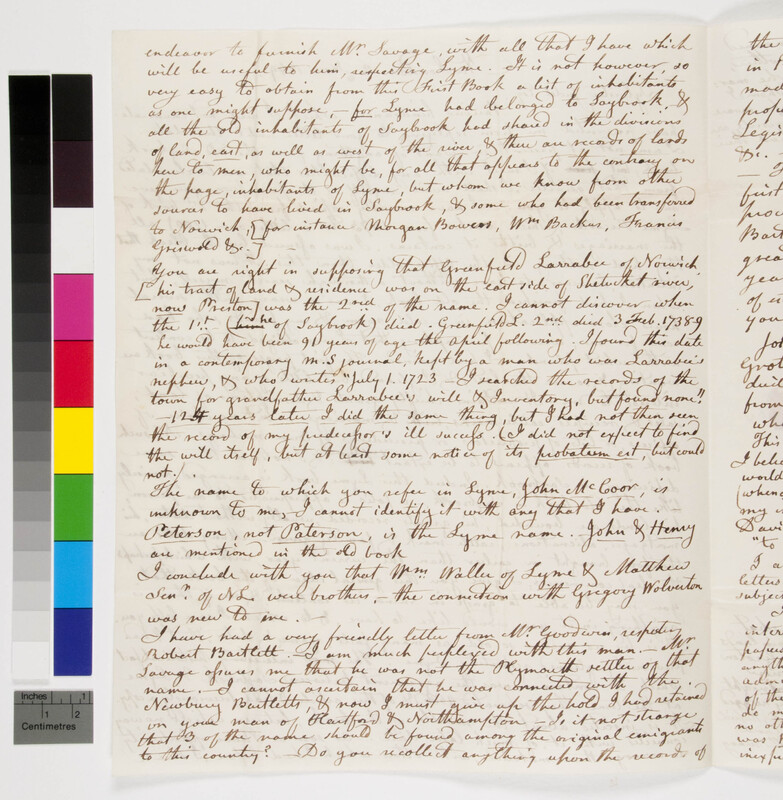 endeavor to furnish Mr. Savage, with all that I have which
will be useful to him, respecting Lyme. It is not however, so
very easy to obtain from this First Book a list of inhabitants
as one might suppose, – for Lyme had belonged to Saybrook, &
all the old inhabitants of Saybrook had shared in the divisions
of land, east, as well as west of the river & there are records of lands
here to men, who might be, for all that appears to the contrary on
the page, inhabitants of Lyme, but whom we know from other
sources to have lived in Saybrook, & some who had been transferred
to Norwich, [for instance Morgan Bowers, Wm Backus, Francis
Griswold &c.] –
You are right in supposing that Greenfield Larrabee of Norwich
[his tract of land & residence was on the east side of Shetucket river,
now Preston] was the 2nd of the name. I cannot discover when
the 1st (he of Saybrook) died. Greenfield L. 2nd died 3 Feb. 1738-9
he would have been 91 years of age the April following. I found this date
in a contemporary m.s journal, kept by a man who was Larrabee's
nephew, & who writes "July 1. 1723 – I searched the records of the
town for grandfather Larrabee's will & Inventory, but found none".
years later I did the same thing, but I had not then seen
the record of my predecessor's ill success. (I did not expect to find
the will itself, but at least some notice of its probatum est, but could
not.)
The name to which you refer in Lyme, John McCoor, is
unknown to me, I cannot identify it with any that I have. –
Peterson, not Paterson, is the Lyme name. John & Henry
are mentioned in the old book
I conclude with you that Wm. Waller of Lyme & Matthew
Senr. of N L. were brothers, – the connection with Gregory Wolverton
was new to me. –
I have had a very friendly letter from Mr. Goodwin, respecting
Robert Bartlett. I am much perplexed with this man. – Mr
Savage assures me that he was not the Plymouth settler of that
name. – I cannot ascertain that he was connected with the
Newbury Bartletts, & now I must give up the hold I had retained
on your man of Hartford & Northampton – Is it not strange
that 3 of the name should be found among the original emigrants
to this country? – Do you recollect anything upon the records of
the
in
made
&c.
year
you
from
This
world
my
"to
I a
letters
subject
of the
de m
no
was
Inches 1
1 2
Centimetres